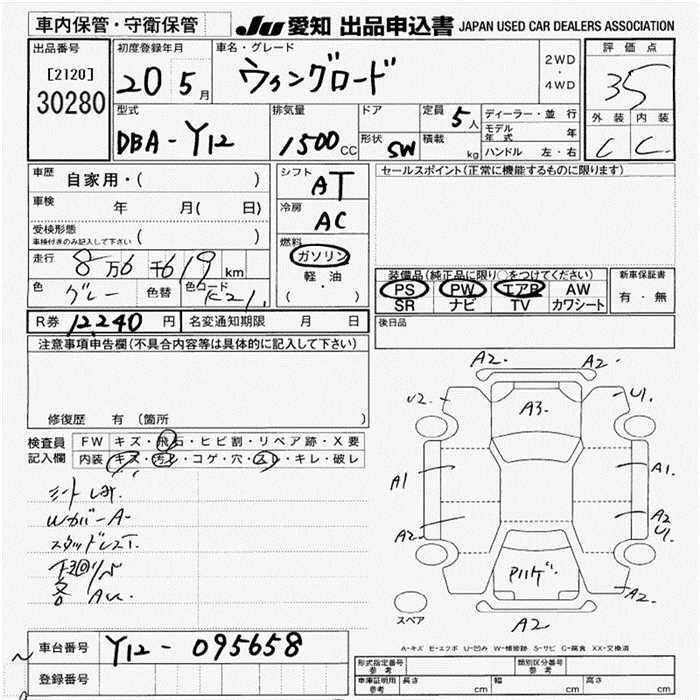 車内保管・守衛保管
JU 愛知 出品申込書 JAPAN USED CAR DEALERS ASSOCIATION
出品番号
[2120]
30280
初度登録年月
20 5月
車名・グレード
ウィングロード
2WD
・
4WD
評価点
35
外装 内装
C C
型式
DBA-Y12
排気量
1500cc
ドア
形状 SW
定員 5人
積載 kg
ディーラー・並行
モデル年式 年
ハンドル 左・右
車歴 自家用・( )
車検 年 月( 日)
受検形態
車検付きのみ記入して下さい ( )
走行 8万6千619km
色 グレー 色替 色コード K21
シフト AT
冷房 AC
燃料
ガソリン
軽・油
( ・ )
セールスポイント(正常に機能するものに限ります)
装備品(純正品に限り○をつけてください)
PS PW エアB AW
SR ナビ TV カワシート
新車保証書
有・無
R券 12240円 名変通知期限 月 日
後日品
注意事項申告欄(不具合内容等は具体的に記入して下さい)
修復歴 有 (箇所 )
検査員記入欄
FW キズ・飛石・ヒビ割・リペア跡・X要
内装 キズ・汚れ・コゲ・穴・スレ・キレ・破レ
WカバーA-
A2. A2.
U2. A3. U1.
A1 A1.
A2. A2
U1.
A2.
A2
スペア
A-キズ E-エクボ U-凹ミ W-補修跡 S-サビ C-腐食 XX-交換済
車台番号 Y12-095658
登録番号
型式指定番号 参考
類別区分番号 参考
車庫証明用 参考 長さ cm 幅 cm 高さ cm